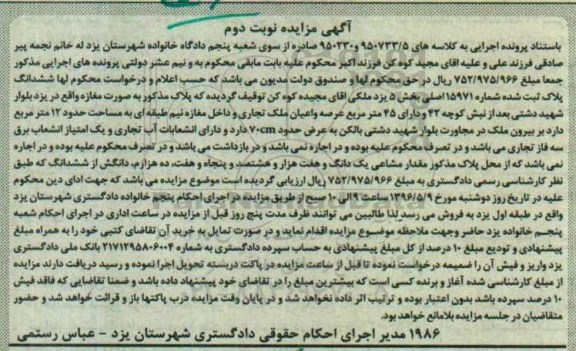 آگهی مزایده نوبت دوم
باستناد پرونده اجرایی به کلاسه های ۹۵۰۷۳۳/۵ و ۹۵۰۲۳۰ صادره از سوی شعبه پنجم دادگاه خانواده شهرستان یزد له خانم نجمه پیر
صادقی فرزند علی و علیه آقای مجید کوه کن فرزند اکبر محکوم علیه بابت مابقی محکوم به و نیم عشر دولتی پرونده های اجرایی مذکور
جمعا مبلغ ۷۵۲/۹۷۵/۹۶۶ ریال در حق محکوم لها و صندوق دولت مدیون می باشد که حسب اعلام و درخواست محکوم لها ششدانگ
پلاک ثبت شده شماره ۱۵۹۷۱ اصلی بخش ۵ یزد ملکی آقای مجید کوه کن توقیف گردیده که پلاک مذکور به صورت مغازه واقع در یزد بلوار
شهید دشتی بعد از نبش کوچه ۴۳ و دارای ۴۵ متر مربع عرصه واعیان ملک تجاری و داخل مغازه نیم طبقه ای به مساحت حدود ۱۲ متر مربع
دارد بر بیرون ملک در مجاورت بلوار شهید دشتی بالکن به عرض حدود ۷۰cm دارد و دارای انشعابات آب تجاری و یک امتیاز انشعاب برق
سه فاز تجاری می باشد و در تصرف محکوم علیه بوده و در اجاره نمی باشد و در بازداشت می باشد و در تصرف محکوم علیه بوده و در اجاره
نمی باشد که از محل پلاک مذکور مقدار مشاعی یک دانگ و هفت هزار و هشتصد و پنجاه و هفت، ده هزارم، دانگش از ششدانگ که طبق
نظر کارشناسی رسمی دادگستری به مبلغ ۷۵۲/۹۷۵/۹۶۶ ریال ارزیابی گردیده است موضوع مزایده می باشد که جهت ادای دین محکوم
علیه در تاریخ روز دوشنبه مورخ ۱۳۹۶/۵/۹ ساعت ۹ الی ۱۰ صبح از طریق مزایده در اجرای احکام پنجم خانواده دادگستری شهرستان یزد
واقع در طبقه اول یزد به فروش می رسد لذا طالبین می توانند ظرف مدت پنج روز قبل از مزایده در ساعت اداری در اجرای احکام شعبه
پنجم خانواده یزد حاضر وجهت ملاحظه موضوع مزایده اقدام نماید و در صورت تمایل به خرید آن تقاضای کتبی خود را به همراه مبلغ
پیشنهادی و تودیع مبلغ ۱۰ درصد از کل مبلغ پیشنهادی به حساب سپرده دادگستری به شماره ۲۱۷۱۲۹۵۸۰۶۰۰۴ بانک ملی دادگستری
یزد واریز و فیش آن را ضمیمه درخواست نموده تا قبل از ساعت مزایده در پاکت دربسته تحویل اجرا نموده و رسید دریافت دارند مزایده
از مبلغ کارشناسی شده آغاز و برنده کسی است که بیشترین مبلغ را در تقاضای خود پیشنهاد داده باشد و ضمنا تقاضایی که فاقد فیش
۱۰ درصد سپرده باشد بدون اعتبار بوده و ترتیب اثر داده نخواهد شد و در پایان وقت مزایده درب پاکتها باز و قرائت خواهد شد و حضور
متقاضیان در جلسه مزایده بلامانع خواهد بود.
۱۹۸۶ مدیر اجرای احکام حقوقی دادگستری شهرستان یزد - عباس رستمی